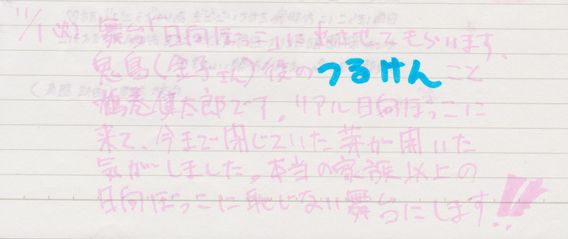 11/1(火) 舞台「日向ぼっこ」に出させてもらいます、
鬼島(金子さん)役のつるけんこと
鶴巻健太郎です。リアル日向ぼっこに
来て、今まで閉じていた芽が開いた
気がしました。本当の家族以上の
日向ぼっこに恥じない舞台にします!!